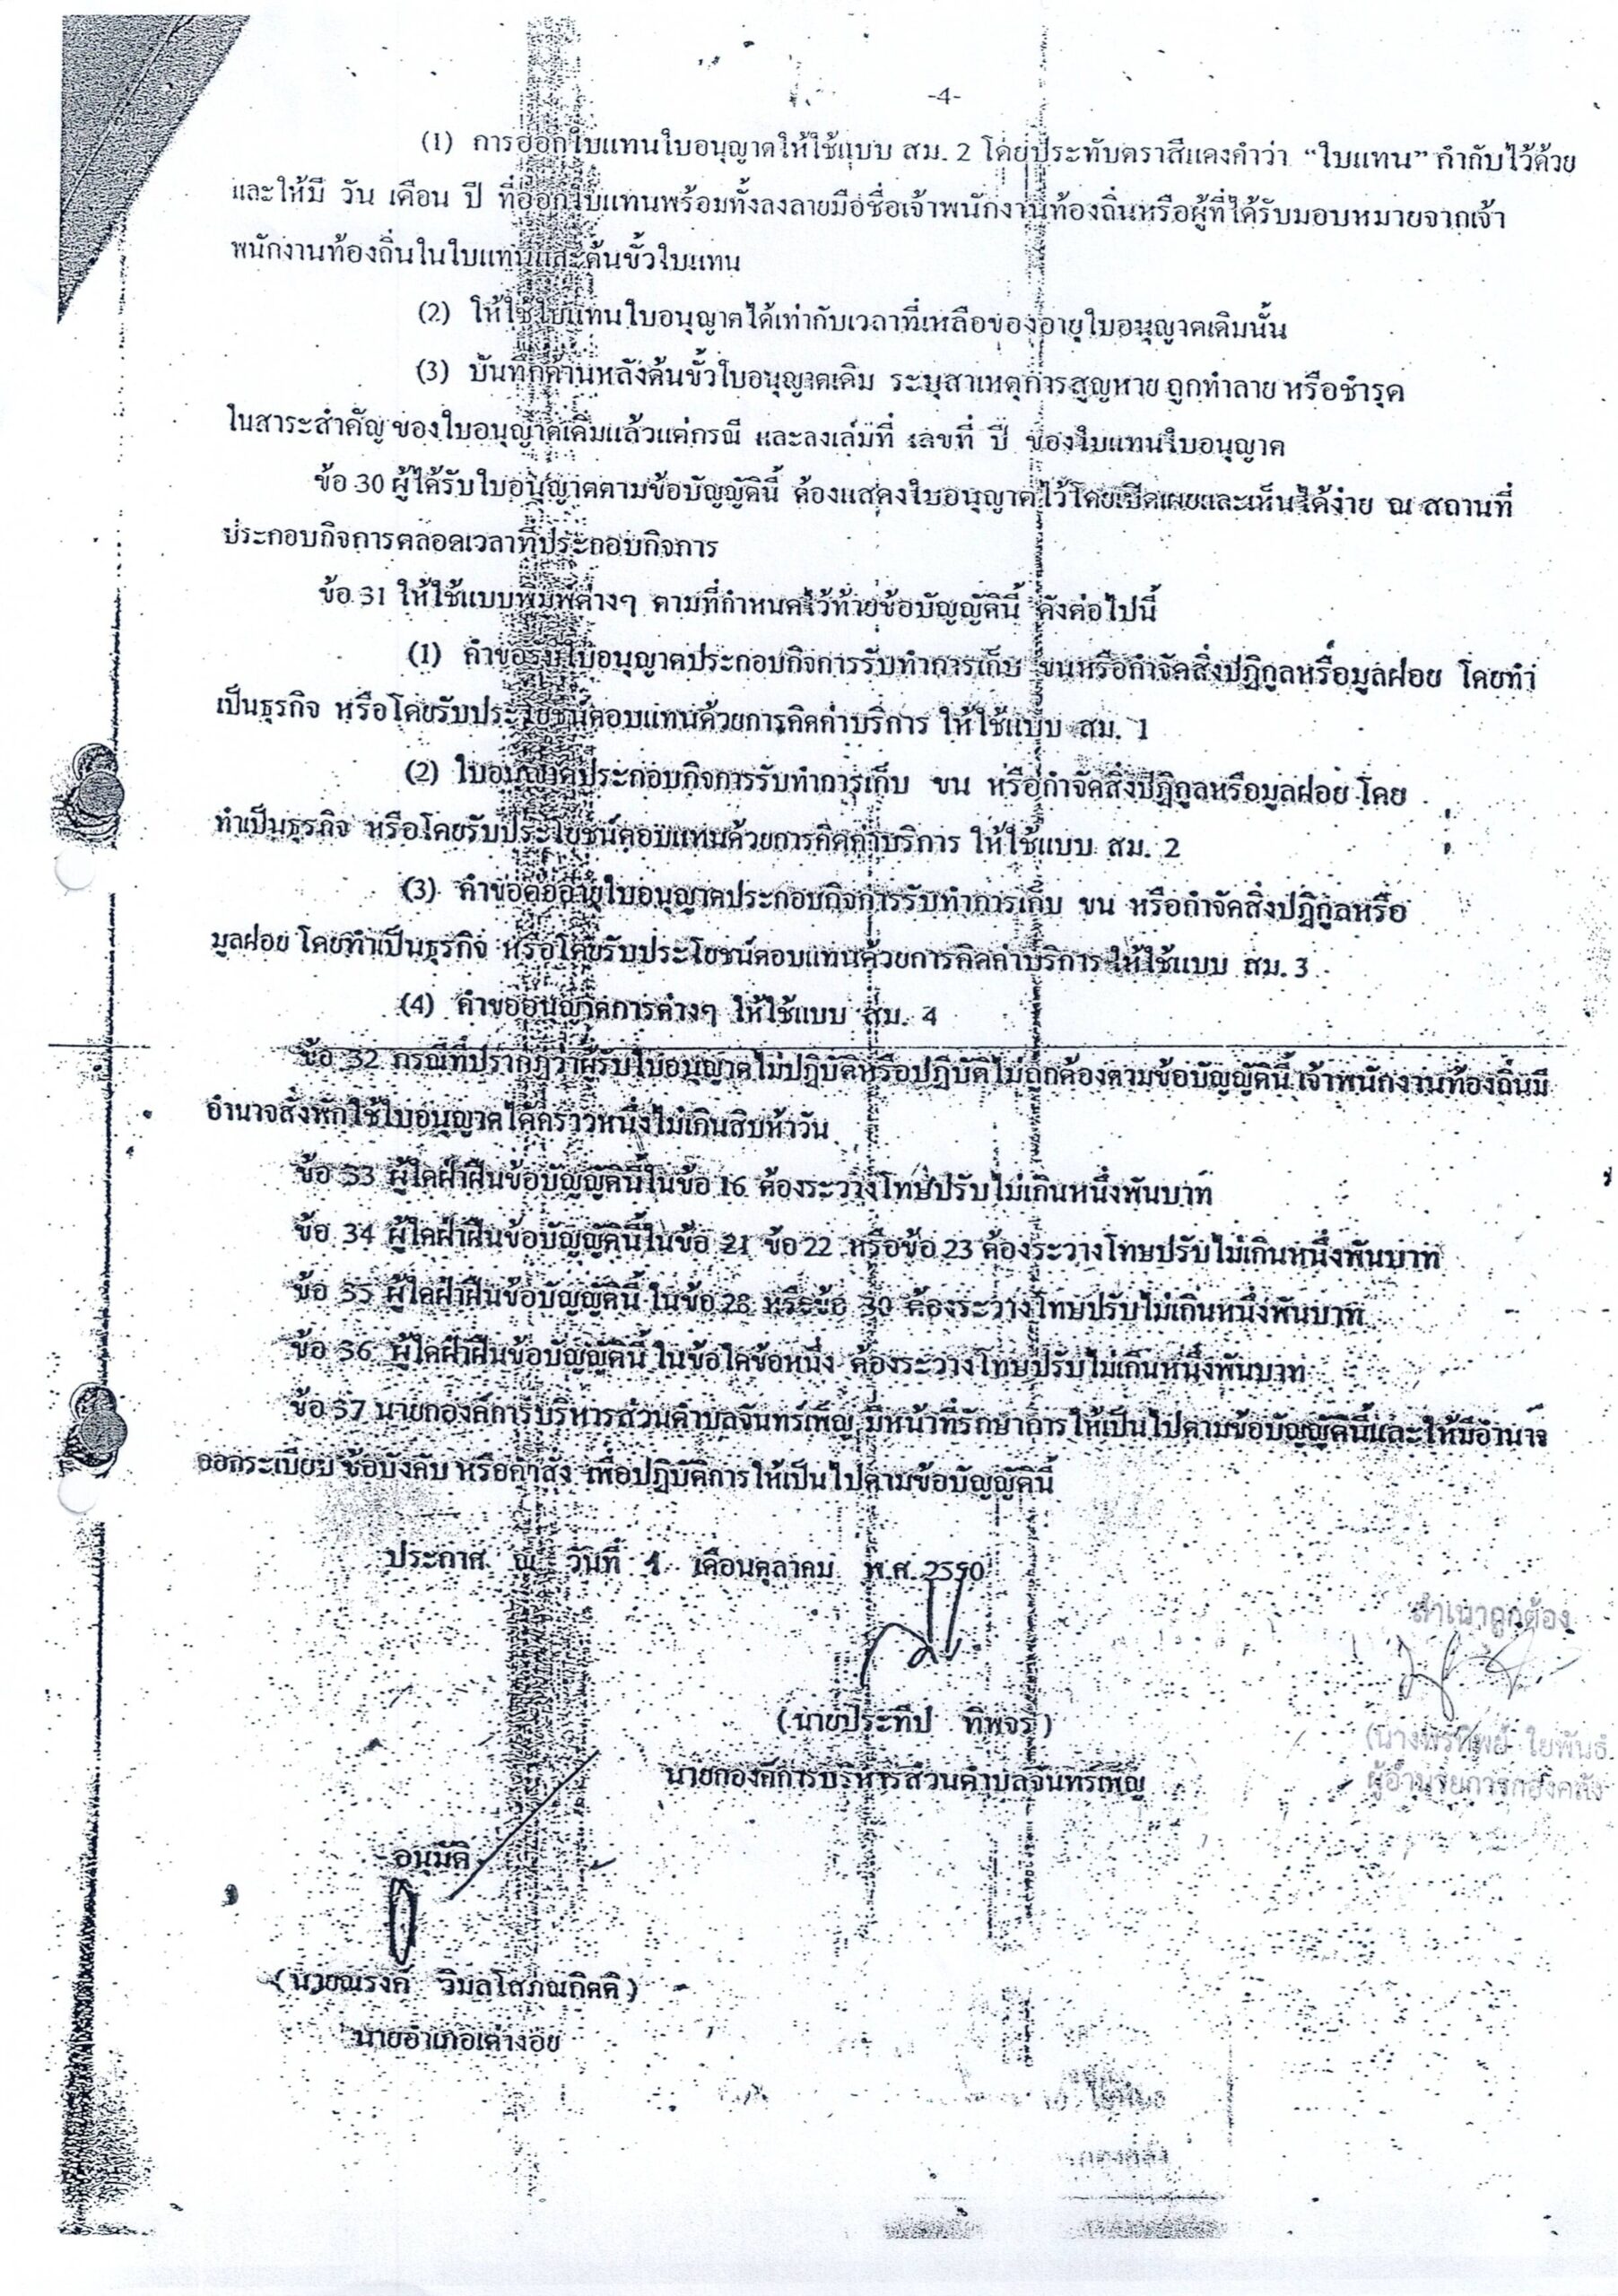 -4-
(1) การออกใบแทนใบอนุญาตให้ใช้แบบ สม. 2 โดยประทับตราสีแดงคำว่า “ใบแทน” กำกับไว้ด้วย
และให้มี วัน เดือน ปี ที่ออกใบแทนพร้อมทั้งลงลายมือชื่อเจ้าพนักงานท้องถิ่นหรือผู้ที่ได้รับมอบหมายจากเจ้า
พนักงานท้องถิ่นในใบแทนและต้นขั้วใบแทน
(2) ให้ใช้ใบแทนใบอนุญาตได้เท่ากับเวลาที่เหลือของอายุใบอนุญาตเดิมนั้น
(3) บันทึกด้านหลังต้นขั้วใบอนุญาตเดิม ระบุสาเหตุการสูญหาย ถูกทำลาย หรือชำรุด
ในสาระสำคัญ ของใบอนุญาตเดิมแล้วแต่กรณี และลงเล่มที่ เลขที่ ปี ของใบแทนใบอนุญาต
ข้อ 30 ผู้ได้รับใบอนุญาตตามข้อบัญญัตินี้ ต้องแสดงใบอนุญาตไว้โดยเปิดเผยและเห็นได้ง่าย ณ สถานที่
ประกอบกิจการตลอดเวลาที่ประกอบกิจการ
ข้อ 31 ให้ใช้แบบพิมพ์ต่างๆ ตามที่กำหนดไว้ท้ายข้อบัญญัตินี้ ดังต่อไปนี้
(1) คำขอรับใบอนุญาตประกอบกิจการรับทำการเก็บ ขนหรือกำจัดสิ่งปฏิกูลหรือมูลฝอย โดยทำ
เป็นธุรกิจ หรือโดยรับประโยชน์ตอบแทนด้วยการคิดค่าบริการ ให้ใช้แบบ สม. 1
(2) ใบอนุญาตประกอบกิจการรับทำการเก็บ ขน หรือกำจัดสิ่งปฏิกูลหรือมูลฝอย โดย
ทำเป็นธุรกิจ หรือโดยรับประโยชน์ตอบแทนด้วยการคิดค่าบริการ ให้ใช้แบบ สม. 2
(3) คำขอต่ออายุใบอนุญาตประกอบกิจการรับทำการเก็บ ขน หรือกำจัดสิ่งปฏิกูลหรือ
มูลฝอย โดยทำเป็นธุรกิจ หรือโดยรับประโยชน์ตอบแทนด้วยการคิดค่าบริการ ให้ใช้แบบ สม. 3
(4) คำขออนุญาตการต่างๆ ให้ใช้แบบ สม. 4
ข้อ 32 กรณีที่ปรากฏว่าผู้รับใบอนุญาตไม่ปฏิบัติหรือปฏิบัติไม่ถูกต้องตามข้อบัญญัตินี้ เจ้าพนักงานท้องถิ่นมี
อำนาจสั่งพักใช้ใบอนุญาตได้คราวหนึ่งไม่เกินสิบห้าวัน
ข้อ 33 ผู้ใดฝ่าฝืนข้อบัญญัตินี้ในข้อ 16 ต้องระวางโทษปรับไม่เกินหนึ่งพันบาท
ข้อ 34 ผู้ใดฝ่าฝืนข้อบัญญัตินี้ในข้อ 21 ข้อ 22 หรือข้อ 23 ต้องระวางโทษปรับไม่เกินหนึ่งพันบาท
ข้อ 35 ผู้ใดฝ่าฝืนข้อบัญญัตินี้ ในข้อ 28 หรือข้อ 30 ต้องระวางโทษปรับไม่เกินหนึ่งพันบาท
ข้อ 36 ผู้ใดฝ่าฝืนข้อบัญญัตินี้ ในข้อใดข้อหนึ่ง ต้องระวางโทษปรับไม่เกินหนึ่งพันบาท
ข้อ 37 นายกองค์การบริหารส่วนตำบลจันทร์เพ็ญ มีหน้าที่รักษาการ ให้เป็นไปตามข้อบัญญัตินี้และให้มีอำนาจ
ออกระเบียบ ข้อบังคับ หรือคำสั่ง เพื่อปฏิบัติการให้เป็นไปตามข้อบัญญัตินี้
ประกาศ ณ วันที่ 1 เดือนตุลาคม พ.ศ. 2550
สำเนาถูกต้อง
(นายประทีป ทิพจร)
นายกองค์การบริหารส่วนตำบลจันทร์เพ็ญ
(นางพรทิพย์ ใยพันธ์
ผู้อำนวยการกองคลัง
อนุมัติ
(นายณรงค์ วิมลโสภณกิตติ)
นายอำเภอเต่างอย
กองคลัง